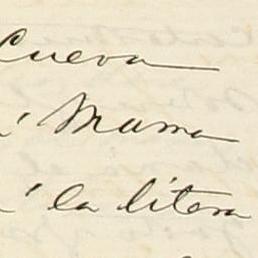 Cueva
Mama
la litera